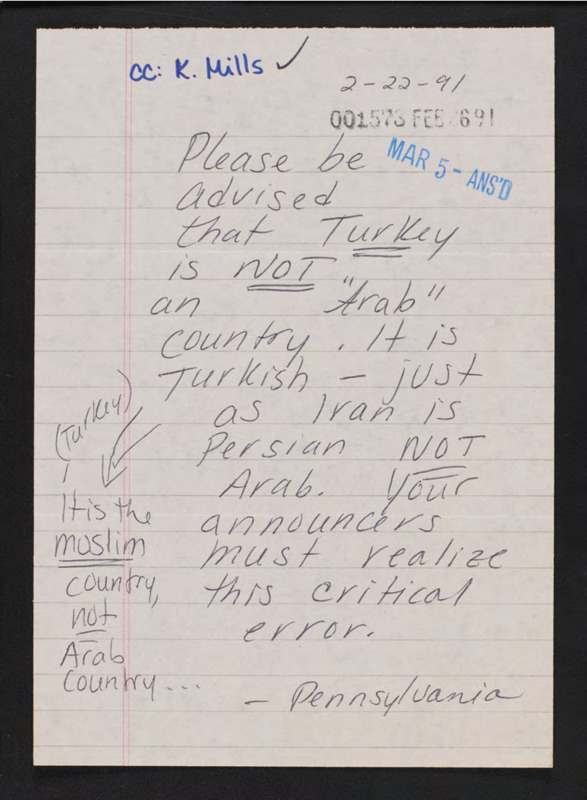 cc: K. Mills ✓
2-22-91
001573 FEB 26 91
MAR 5 - ANS'D
Please be
advised
that Turkey
is NOT
an "Arab"
country. It is
Turkish - just
as Iran is
Persian NOT
Arab. Your
announcers
must realize
this critical
error.
- Pennsylvania
(Turkey)
It is the
muslim
country,
not
Arab
Country...